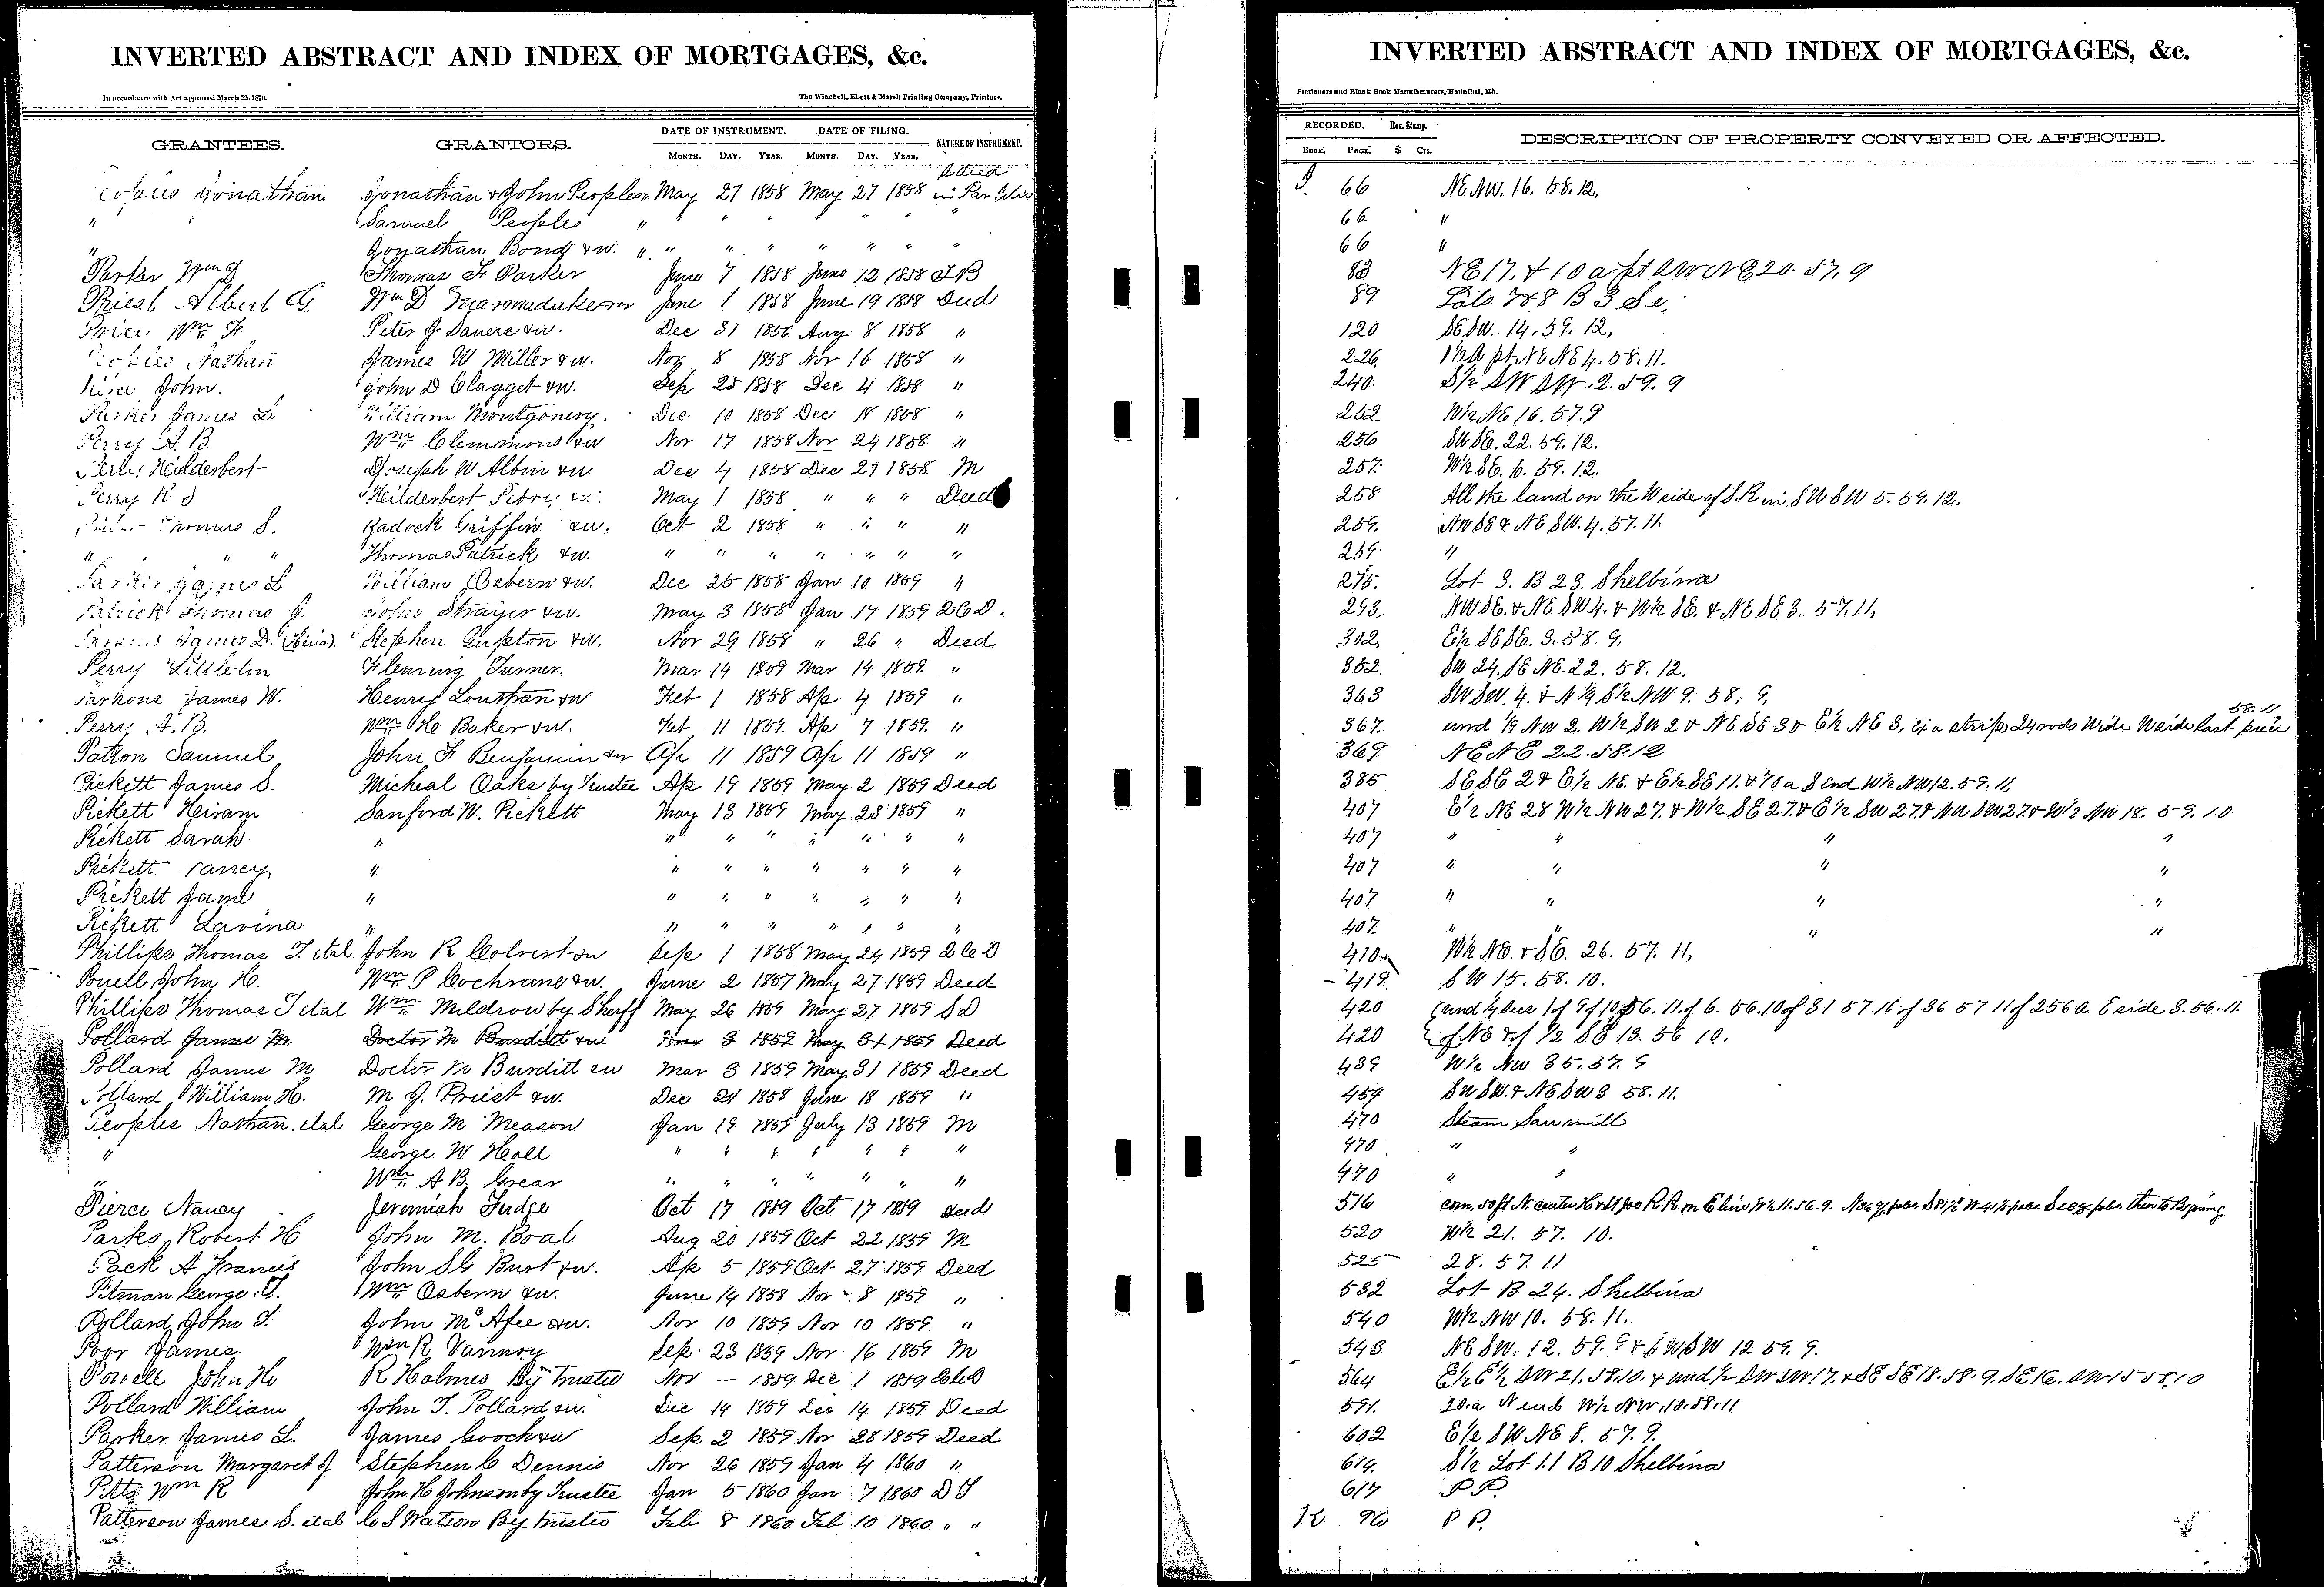 INVERTED ABSTRACT AND INDEX OF MORTGAGES, &c.
In accordance with Act approved March 25, 1870. The Winchell, Ebert & Marsh Printing Company, Printers,
GRANTEES. GRANTORS. DATE OF INSTRUMENT. DATE OF FILING. NATURE OF INSTRUMENT.
MONTH. DAY. YEAR. MONTH. DAY. YEAR.
Jonathan Jonathan & John Peoples May 27 1858 May 27 1858
" Samuel Peoples " " " " " " "
" Jonathan Bond &w. " " " " " " "
Parker Wm D Thomas F Parker June 7 1858 June 12 1858
Priest Albert G. Wm D Marmaduke &w June 1 1858 June 19 1858 Deed
Price Wm F. Peter J &w. Dec 31 1856 Aug 8 1858 "
Peoples Nathan James W Miller &w. Nov 8 1858 Nov 16 1858 "
John. John D Clagget &w. Sep 25 1858 Dec 4 1858 "
Parker James L. William Montgomery. Dec 10 1858 Dec 18 1858 "
Perry A. B. Wm Clemmons &w Nov 17 1858 Nov 24 1858 "
Hilderbert Joseph W Albin &w Dec 4 1858 Dec 27 1858 M
Perry R J. Hilderbert May 1 1858 " " " Deed
Thomas S. Radock Griffin &w. Oct 2 1858 " " " "
" " " Thomas Patrick &w. " " " " " " "
Parker James L William Osbern &w. Dec 25 1858 Jan 10 1859 "
Patrick Thomas J. John Strayer &w. May 3 1858 Jan 17 1859
James D. (Heirs) Stephen Gupton &w. Nov 29 1858 " 26 " Deed
Perry Littleton Fleming Turner. Mar 14 1859 Mar 14 1859 "
Parsons James W. Henry Louthan &w Feb 1 1858 Ap 4 1859 "
Perry A. B. Wm H Baker &w. Feb 11 1859 Ap 7 1859. "
Patton Samuel John F Benjamin &w Ap 11 1859 Ap 11 1859 "
Pickett James S. Micheal Oaks by Trustee Ap 19 1859 May 2 1859 Deed
Pickett Hiram Sanford W. Pickett May 13 1859 May 23 1859 "
Pickett Sarah " " " " " " " "
Pickett " " " " " " " "
Pickett Jame " " " " " " " "
Pickett Lavina " " " " " " " "
Phillips Thomas J. etal John R Colvert &w Sep 1 1858 May 24 1859
Powell John H. Wm P Cochrane &w. June 2 1857 May 27 1859 Deed
Phillips Thomas J etal Wm Muldrow by Sheriff May 26 1859 May 27 1859 S D
Pollard James M. Doctor M Burditt &w Mar 3 1859 May 31 1859 Deed
Pollard James M Doctor M Burditt &w Mar 3 1859 May 31 1859 Deed
Pollard William H. M J. Priest &w. Dec 21 1858 June 18 1859 "
Peoples Nathan etal George M Meason Jan 19 1859 July 13 1859 M
" George W Hall " " " " " " "
" Wm A B. Grear " " " " " " "
Pierce Nancy Jeremiah Fudge Oct 17 1859 Oct 17 1859 Deed
Parks, Robert H John M. Boal Aug 20 1859 Oct 22 1859 M
Pack A Francis John S G Burt &w. Ap 5 1859 Oct 27 1859 Deed
Pitman George T. Wm Osbern &w. June 14 1858 Nov 8 1859 "
Pollard, John T. John McAfee &w. Nov 10 1859 Nov 10 1859 "
Poor James. Wm R Vannoy Sep 23 1859 Nov 16 1859 M
Powell John H R Holmes By Trustee Nov — 1859 Dec 1 1859
Pollard William John T. Pollard &w. Dec 14 1859 Dec 14 1859 Deed
Parker James L. James Gooch &w Sep 2 1859 Nov 28 1859 Deed
Patterson Margaret J Stephen C Dennis Nov 26 1859 Jan 4 1860 "
Pitts Wm R John H Johnson by Trustee Jan 5 1860 Jan 7 1860 D T
Patterson James S. etal C S Watson By Trustee Feb 8 1860 Feb 10 1860 " "
INVERTED ABSTRACT AND INDEX OF MORTGAGES, &c.
Stationers and Blank Book Manufacturers, Hannibal, Mo.
RECORDED. Rev. Stamp. DESCRIPTION OF PROPERTY CONVEYED OR AFFECTED.
BOOK. PAGE. $ Cts.
J. 66 NE NW. 16. 58. 12.
66. "
66 "
83 NE 17. & 10 a pt NW NE 20. 57. 9
89 Lots 7&8 B 3
120 SE SW. 14. 59. 12.
226. 1½ A pt NE NE 4. 58. 11.
240. S½ SW SW. 2. 59. 9
252 W½ NE 16. 57. 9
256 SW SE. 22. 59. 12.
257. W½ SE. 6. 59. 12.
258 All the land on the W side of S.R in SW SW 5. 59. 12.
259. NW SE & NE SW. 4. 57. 11.
259 "
275. Lot 3. B 23. Shelbina
293. NW SE. & NE SW 4. & W½ SE. & NE SE 3. 57. 11.
302. E½ SE SE. 3. 58. 9.
352. SW 24. SE NE. 22. 58. 12.
363 SW SW. 4. & N½ S½ NW 9. 58. 9.
58. 11
367. und ½ NW 2. W½ SW 2 & NE SE 3 & E½ NE 3, Ex a strip 24 rods Wide W side last piece
369 NE NE 22. 58. 12
385 SE SE 2 & E½ NE. & E½ SE 11. & 70 a S End W½ NW 12. 59. 11.
407 E½ NE 28 W½ NW 27. & W½ SE 27. & E½ SW 27. & NW SW 27. & W½ NW 18. 59. 10
407 " " " "
407 " " " "
407 " " " "
407. " " " "
410 W½ NE. & SE. 26. 57. 11.
419 SW 15. 58. 10.
420 256 a E side 3. 56. 11.
420 of NE & of ½ SE 13. 56 10.
439 W½ NW 35. 57. 9
454 SW SW. & NE SW 3 58. 11.
470 Steam Sawmill
470 " "
470 " "
516
520 W½ 21. 57. 10.
525 28. 57. 11
532 Lot B 24. Shelbina
540 W½ NW 10. 58. 11.
543 NE SW. 12. 59. 9 & SW SW 12 59. 9.
564 E½ E½ SW 21. 58. 10. & und ½ SW SW 17. & SE SE 18. 58. 9. SE 16. SW 15 58. 10
591. 20. a N end W½ NW. 10. 58. 11
602 E½ SW NE 8. 57. 9.
614. S½ Lot 11 B 10 Shelbina
617 P P.
K 96 P P.